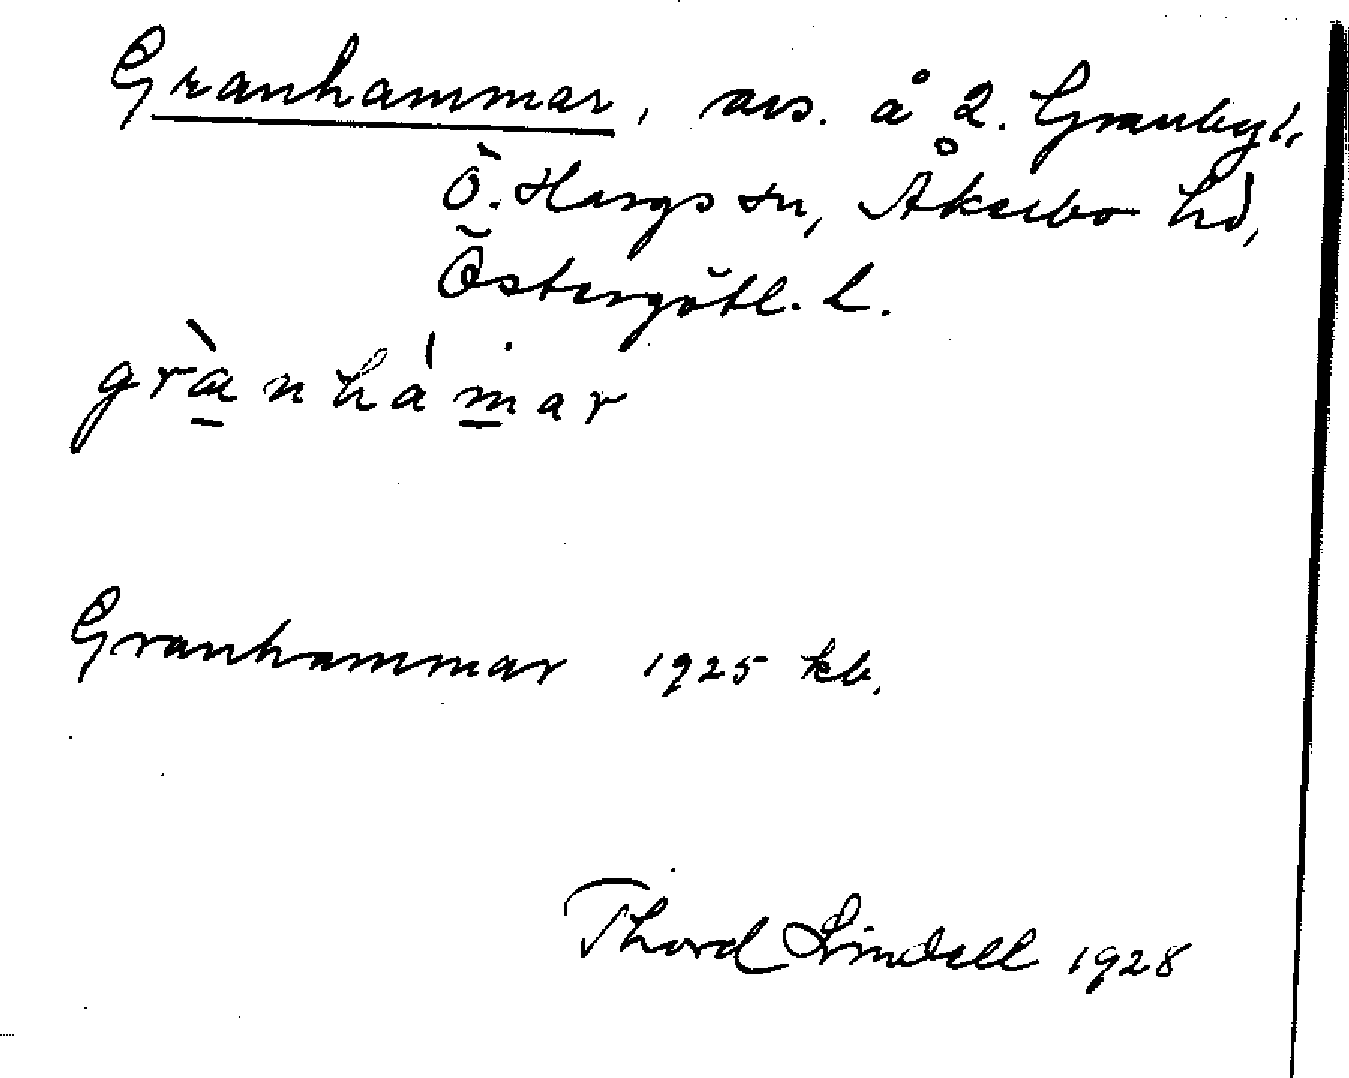 Granhammar, avs. å 2. Granby t.
Ö. Hargs sn, Åkerbo hd,
Östergötl. l.
grànhámar
Granhammar 1925 kb.
Thord Lindell 1928